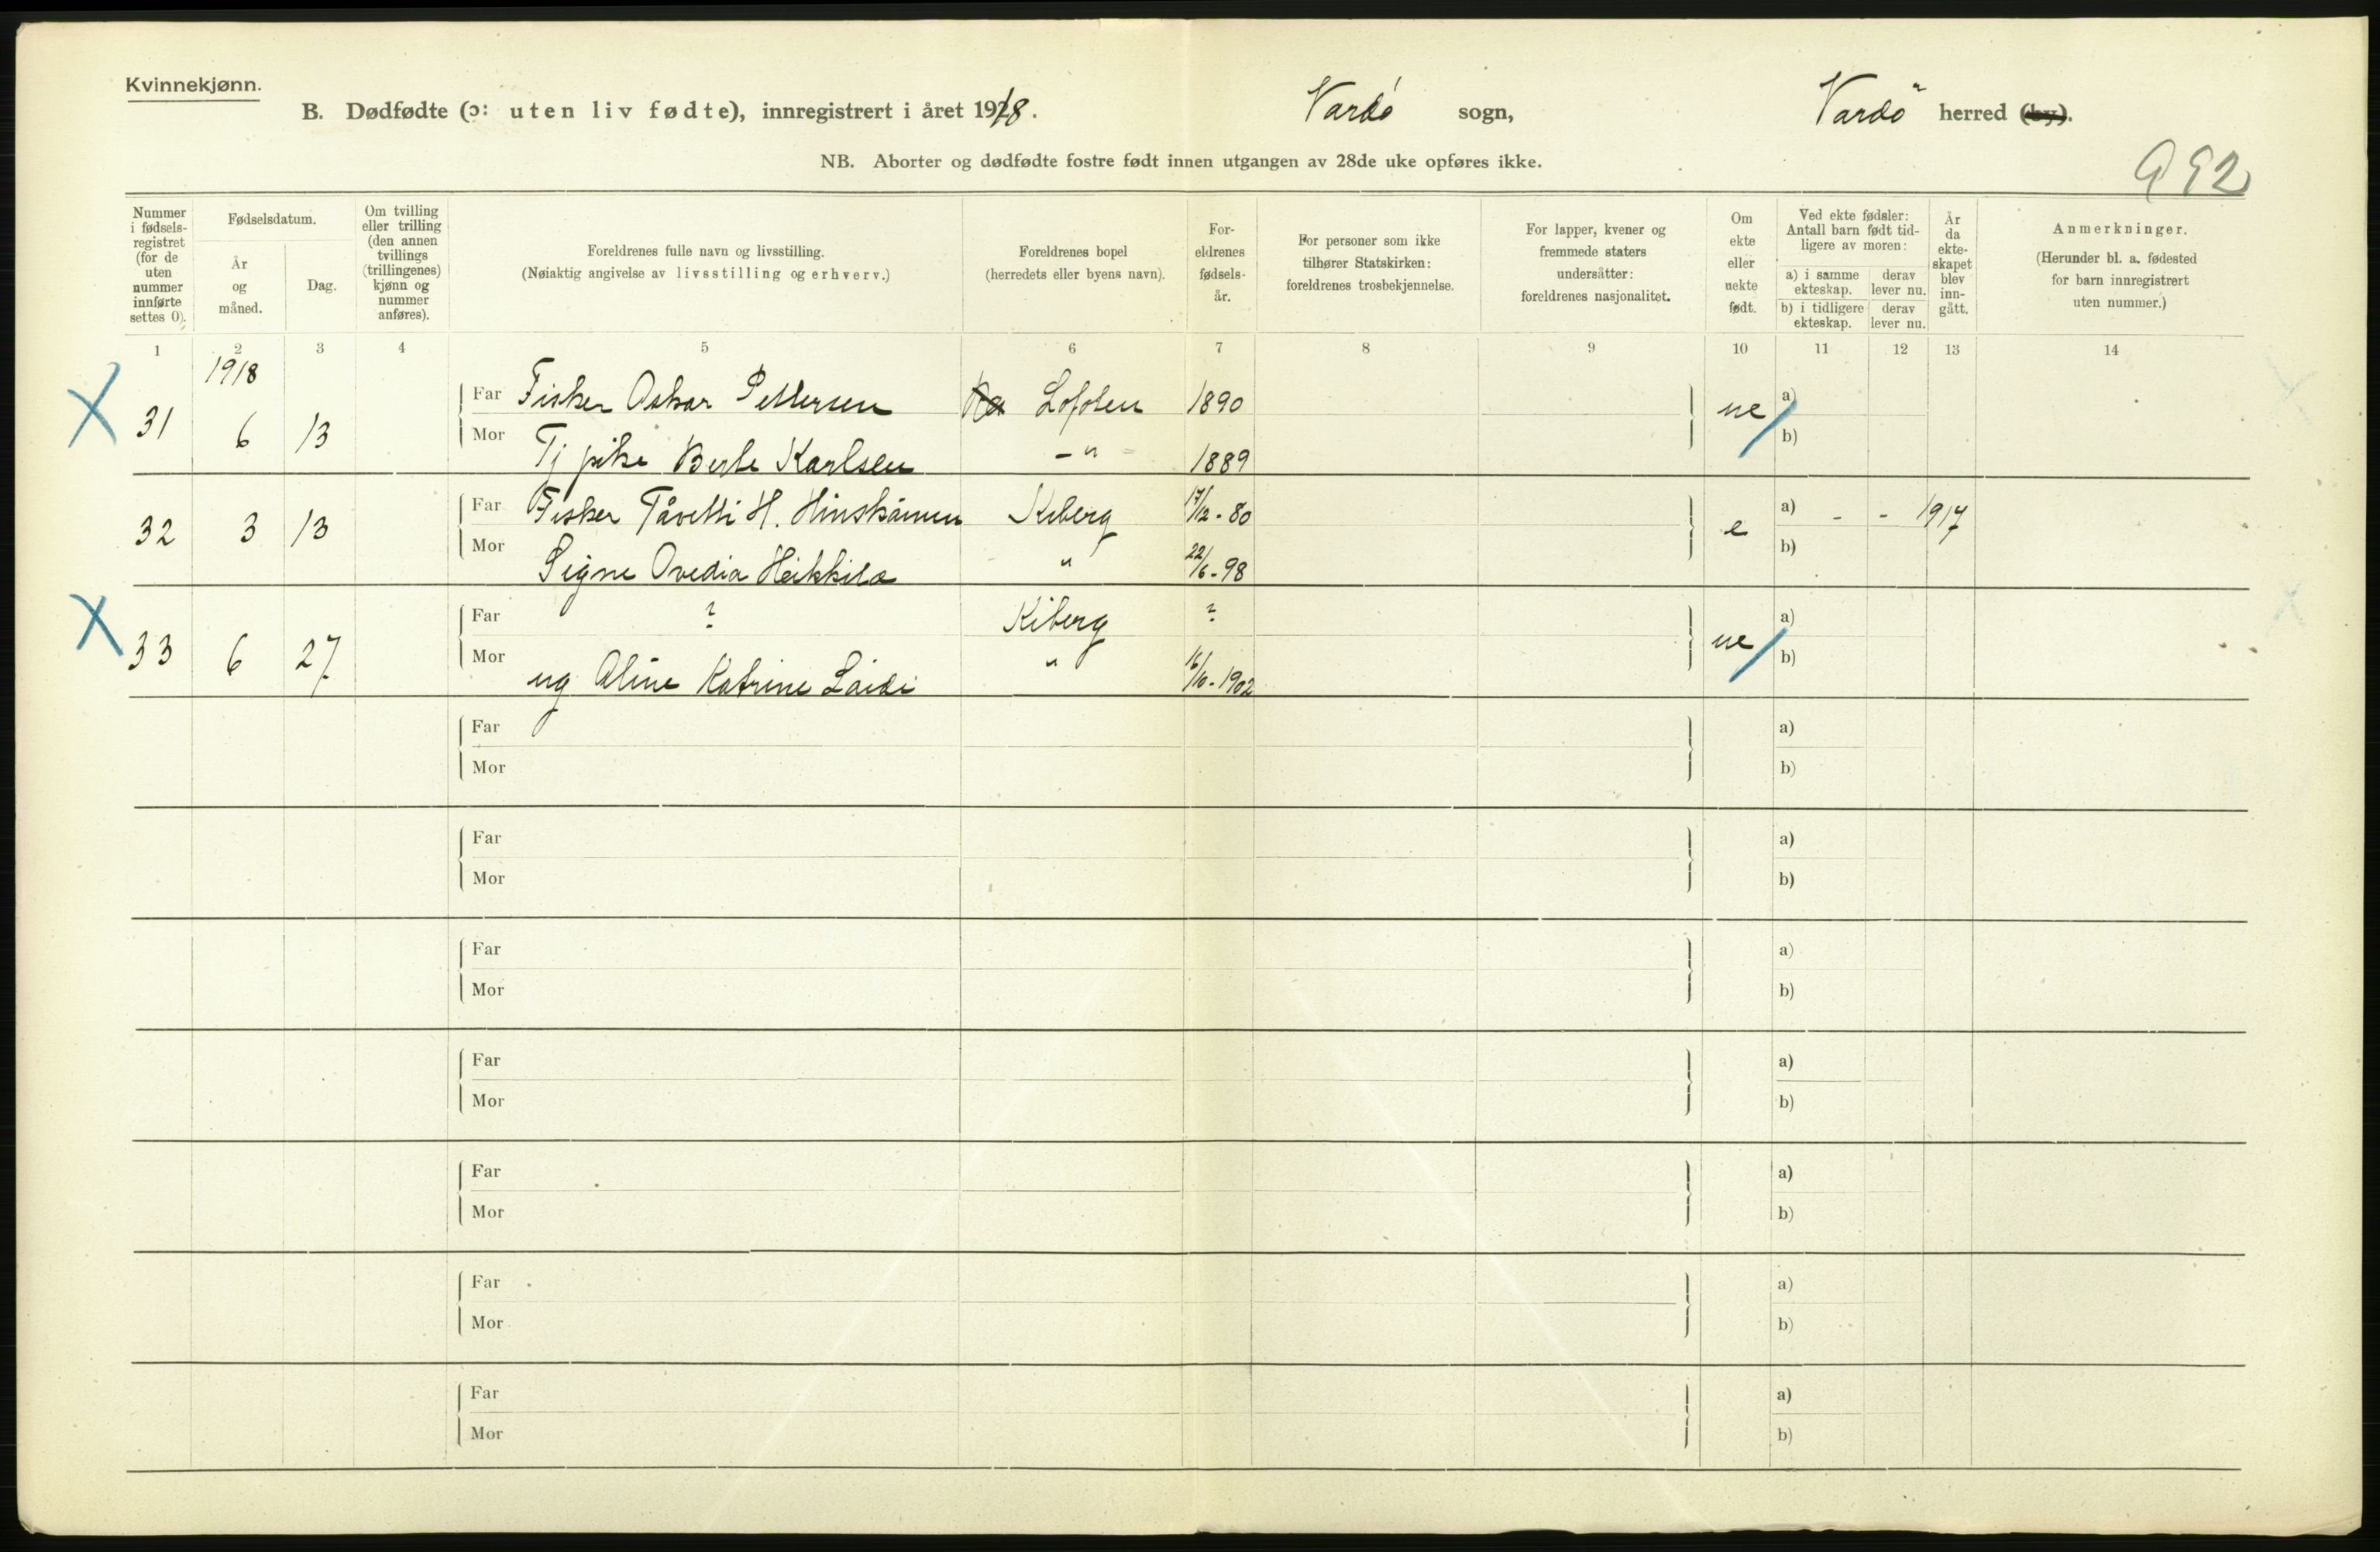 Kvinnekjønn.
B. Dødfødte (ɔ: uten liv fødte), innregistrert i året 1918. Vardø sogn, Vardö herred (by).
NB. Aborter og dødfødte fostre født innen utgangen av 28de uke opføres ikke.
992
Nummer i fødsels-registret (for de uten nummer innførte settes 0).
Fødselsdatum.
År og måned.
Dag.
Om tvilling eller trilling (den annen tvillings (trillingenes) kjønn og nummer anføres).
Foreldrenes fulle navn og livsstilling.
(Nøiaktig angivelse av livsstilling og erhverv.)
Foreldrenes bopel
(herredets eller byens navn).
For-eldrenes fødsels-år.
For personer som ikke tilhører Statskirken: foreldrenes trosbekjennelse.
For lapper, kvener og fremmede staters undersåtter: foreldrenes nasjonalitet.
Om ekte eller uekte født.
Ved ekte fødsler: Antall barn født tid-ligere av moren:
a) i samme ekteskap. derav lever nu.
b) i tidligere ekteskap. derav lever nu.
År da ekte-skapet blev inn-gått.
Anmerkninger.
(Herunder bl. a. fødested for barn innregistrert uten nummer.)
1 2 3 4 5 6 7 8 9 10 11 12 13 14
1918
31 6 13 Far Fisker Oskar Pettersen Lofoten 1890 ue a)
Mor Tj pike Berte Karlsen -"- 1889 b)
32 3 13 Far Fisker Tåvetti H. Hinskainen Kiberg 17/12-80 e a) - - 1917
Mor Signe Ovedia Heikkila " 22/6-98 b)
33 6 27 Far ? Kiberg ? ue a)
Mor ug Aline Katrine Laidi " 16/10-1902 b)
Far a)
Mor b)
Far a)
Mor b)
Far a)
Mor b)
Far a)
Mor b)
Far a)
Mor b)
Far a)
Mor b)
Far a)
Mor b)